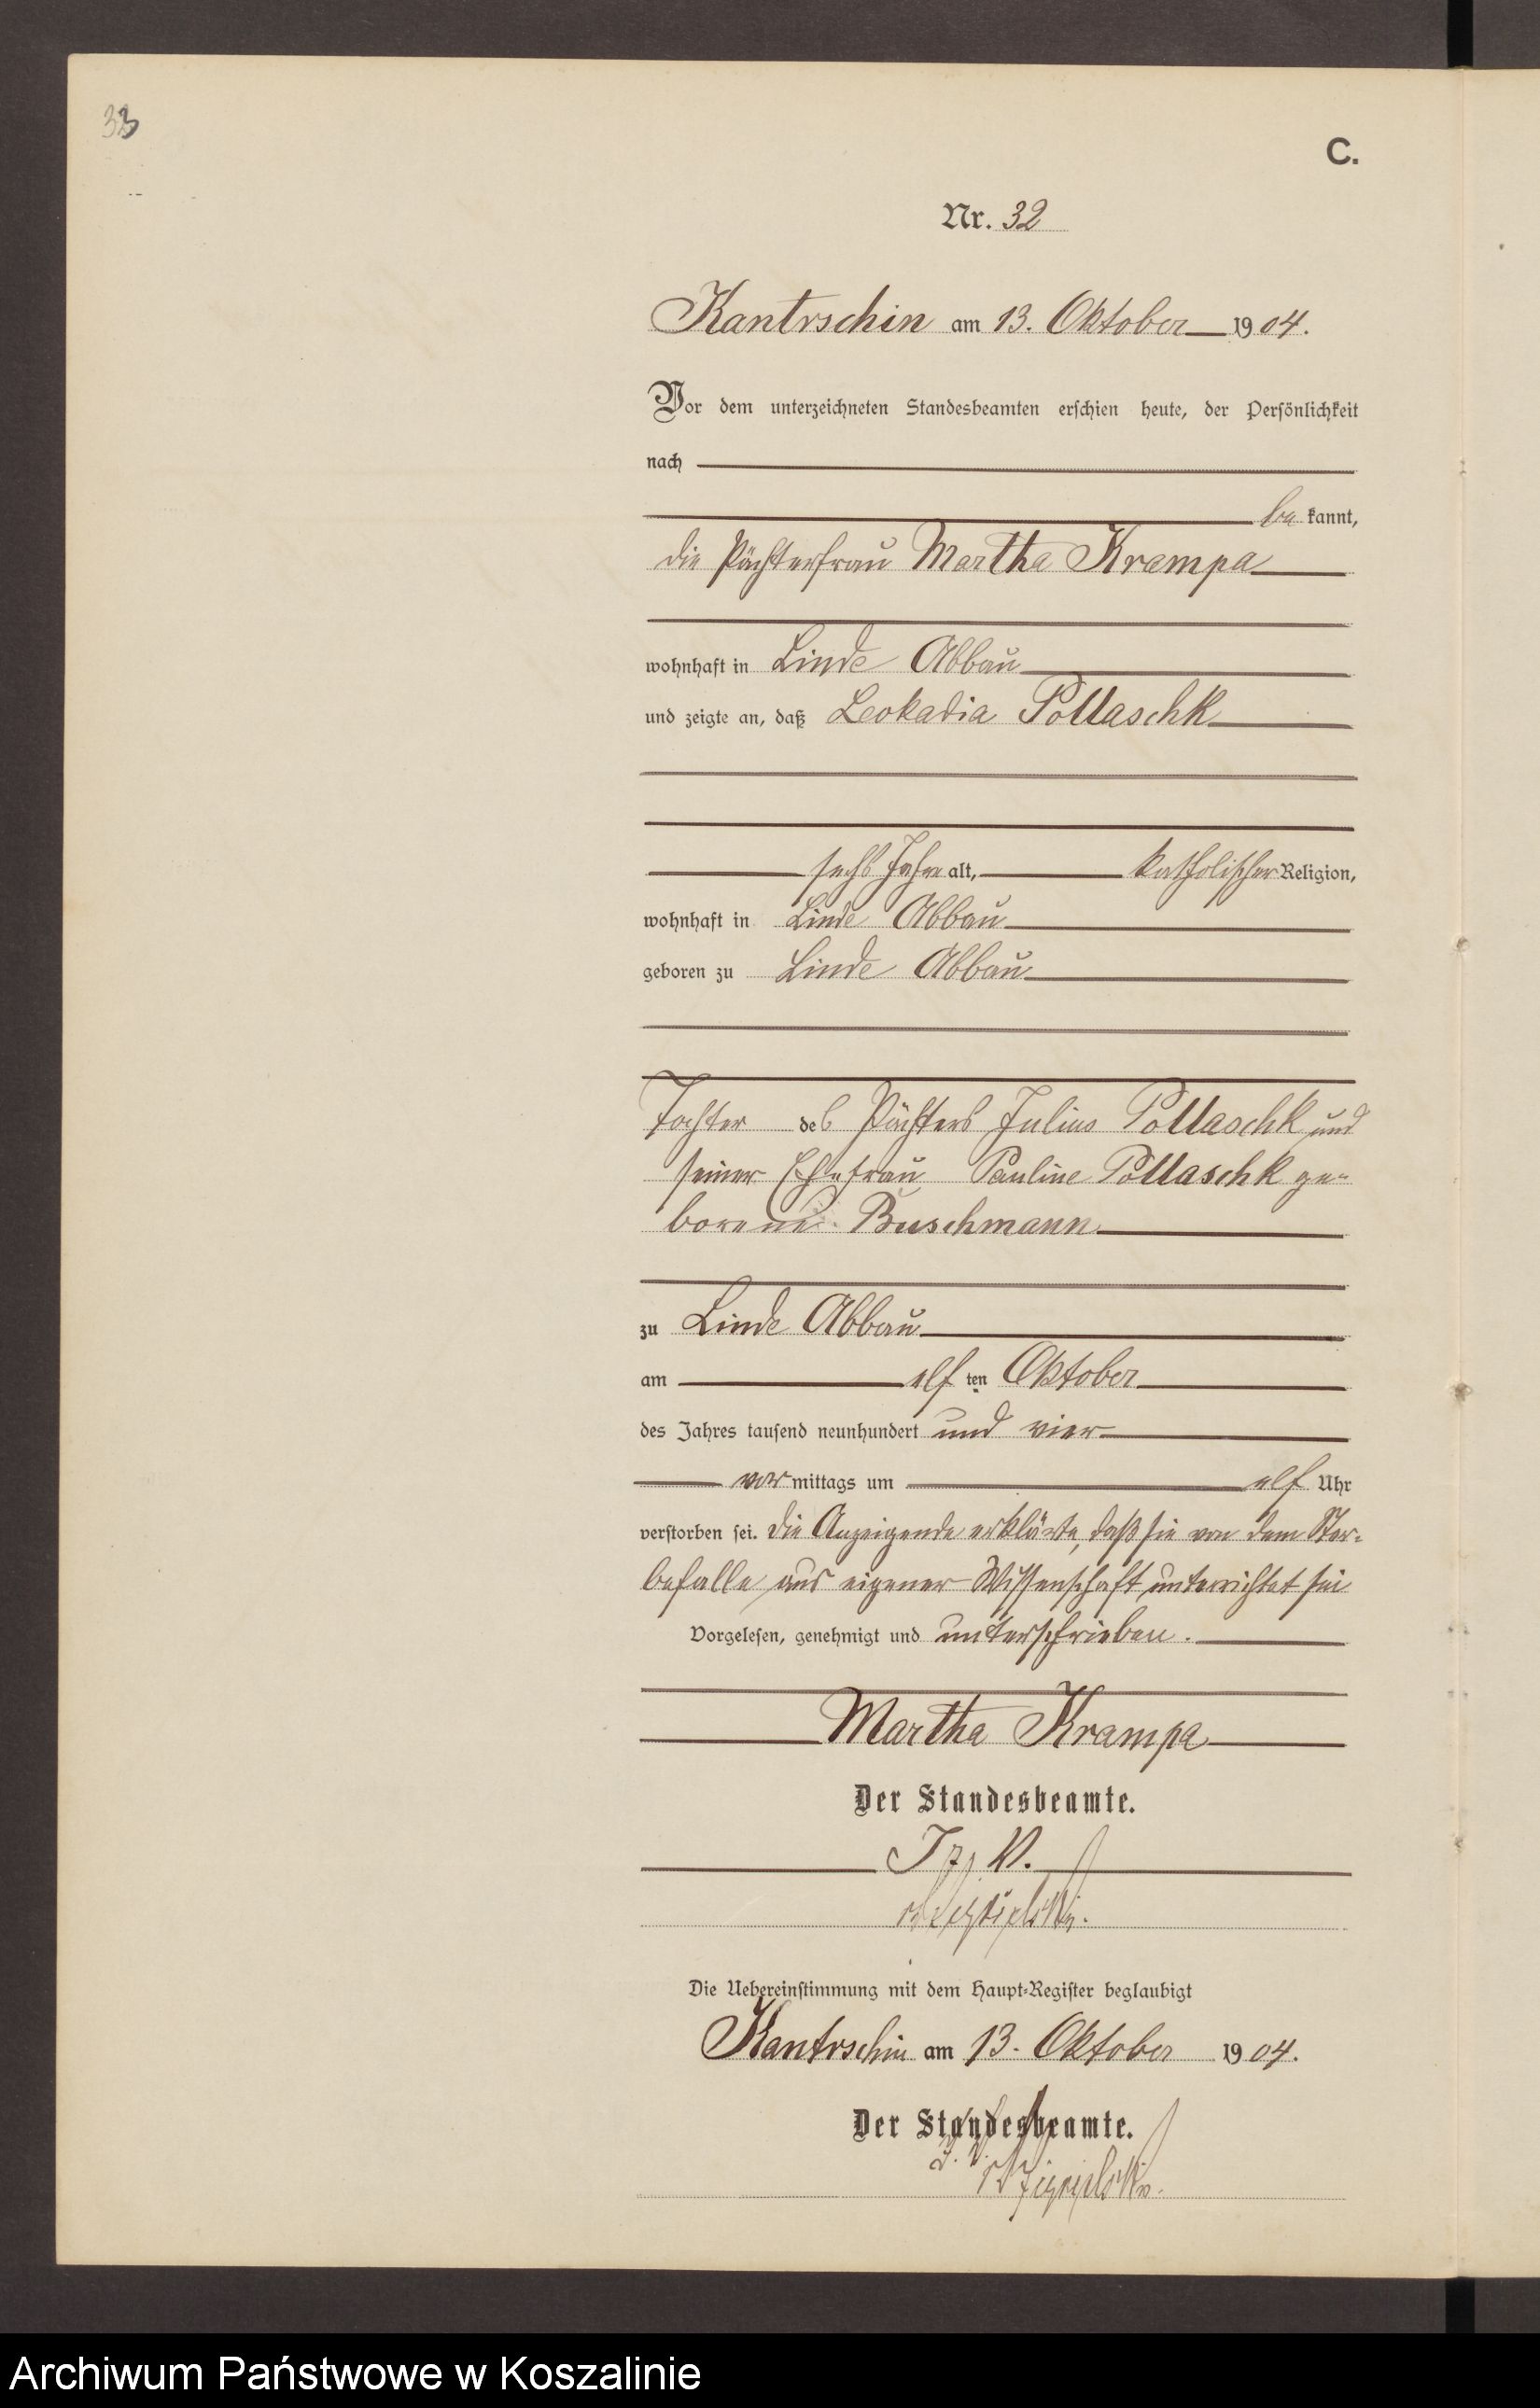 33
C.
Nr. 32
Kantrschin am 13. Oktober 1904.
Vor dem unterzeichneten Standesbeamten erschien heute, der Persönlichkeit
nach
bekannt,
die Pächterfrau Martha Krampa
wohnhaft in Linde Abbau
und zeigte an, daß Leokadia Pollaschk
sechs Jahre alt, katholischer Religion,
wohnhaft in Linde Abbau
geboren zu Linde Abbau
Tochter des Pächters Julius Pollaschk und
seiner Ehefrau Pauline Pollaschk ge-
borene Buschmann
zu Linde Abbau
am elf ten Oktober
des Jahres tausend neunhundert und vier
vor mittags um elf Uhr
verstorben sei. Die Anzeigende erklärte, daß sie von dem Ster-
befalle aus eigener Wissenschaft unterrichtet sei
Vorgelesen, genehmigt und unterschrieben.
Martha Krampa
Der Standesbeamte.
Die Uebereinstimmung mit dem Haupt-Register beglaubigt
Kantrschin am 13. Oktober 1904.
Der Standesbeamte.
Archiwum Państwowe w Koszalinie